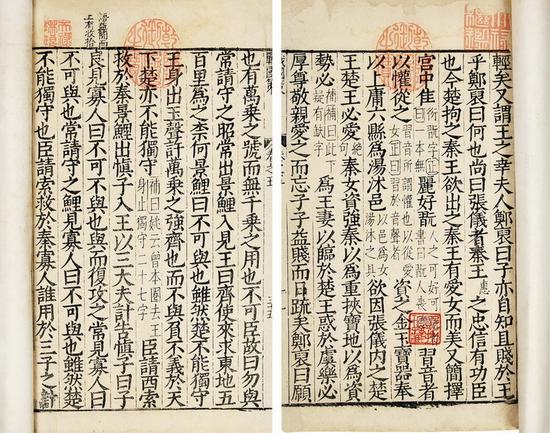 輕矣又謂王之幸夫人鄭褏曰子亦自知且賤於王
乎鄭褏曰何也尚曰張儀者秦王惠之忠信有功臣
也今楚拘之秦王欲出之秦王有愛女而美又簡擇
宮中佳麗好翫習音者
以懽從之習音所謂懽也以從愛女正曰習於音聲者資之金玉寶器奉
以上庸六縣爲湯沐邑以邑爲女湯沐之具欲因張儀內之楚
王楚王必愛絶句秦女資強秦以爲重挾寶地以爲資
勢必補曰此下疑有缺字爲王妻以臨於楚王惑於虞樂必
厚尊敬親愛之而忘子子益賤而日疏矣鄭褏曰願
也有萬乘之號而無千乘之用也不可臣故曰勿與
常請守之昭常出景鯉入見王曰齊使來求東地五
百里爲之奈何景鯉曰不可與也雖然楚不能獨守
王身出玉聲許萬乘之強齊也而不與負不義於天
下楚亦不能獨守姚云曾本圈去王身止獨守二十七字臣請西索
救於秦景鯉出慎子入王以三大夫計告慎子曰子
良見寡人曰不可不與也與而復攻之常見寡人曰
不可與也常請守之鯉見寡人曰不可與也雖然楚
不能獨守也臣請索救於秦寡人誰用於三子之